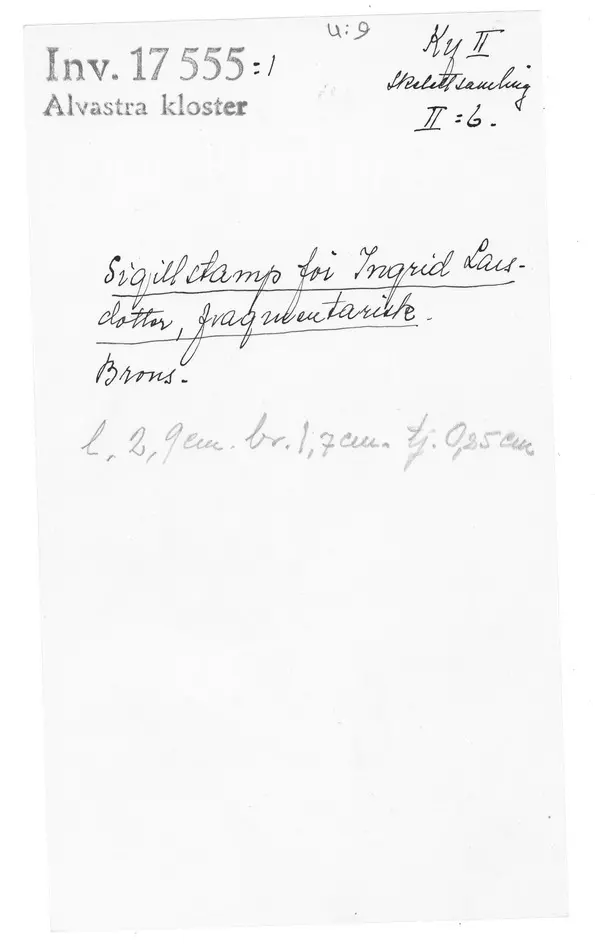 4:9
Inv. 17 555:1
Alvastra kloster
Ky II
Skelettsamling
II:6.
Sigillstamp för Ingrid Lars-
dotter, fragmentarisk.
Brons.
l. 2,9 cm. br. 1,7 cm. tj. 0,25 cm